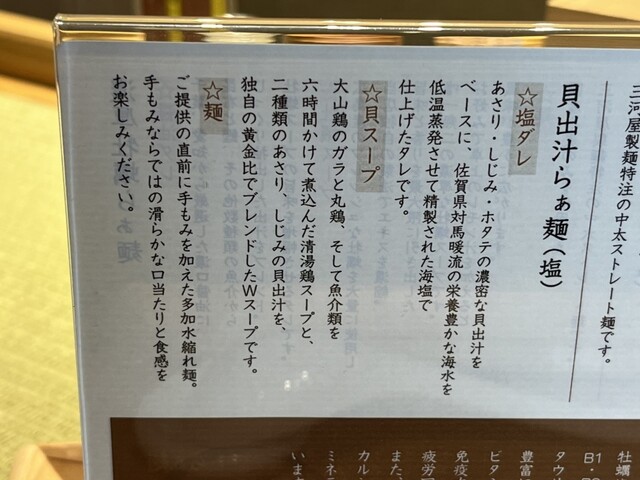 三河屋製麺特注の中太ストレート麺です。
貝出汁らぁ麺（塩）
☆塩ダレ
あさり・しじみ・ホタテの濃密な貝出汁を
ベースに、佐賀県対馬暖流の栄養豊かな海水を
低温蒸発させて精製された海塩で
仕上げたタレです。
☆貝スープ
大山鶏のガラと丸鶏、そして魚介類を
六時間かけて煮込んだ清湯鶏スープと、
二種類のあさり、しじみの貝出汁を、
独自の黄金比でブレンドしたWスープです。
☆麺
ご提供の直前に手もみを加えた多加水縮れ麺。
手もみならではの滑らかな口当たりと食感を
お楽しみください。
牡蠣
B1・B2
タウリ
豊富に
ビタミ
免疫
疲労
また、
カル
ミネラ
いま